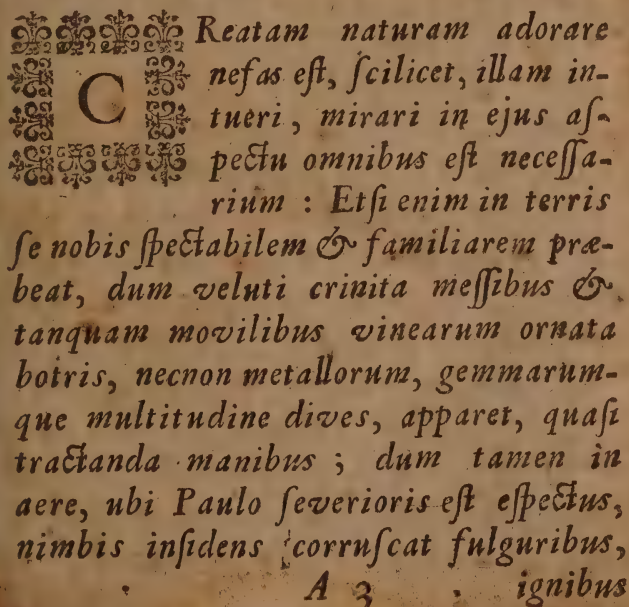 CReatam naturam adorare
nefas eſt, ſcilicet, illam in-
tueri, mirari in ejus aſ-
pectu omnibus eſt neceſſa-
rium : Etſi enim in terris
ſe nobis ſpectabilem & familiarem præ-
beat, dum veluti crinita meſſibus &
tanquam movilibus vinearum ornata
botris, necnon metallorum, gemmarum-
que multitudine dives, apparet, quaſi
tractanda manibus ; dum tamen in
aere, ubi Paulo ſeverioris eſt eſpectus,
nimbis inſidens corruſcat fulguribus,
A 3 ignibus